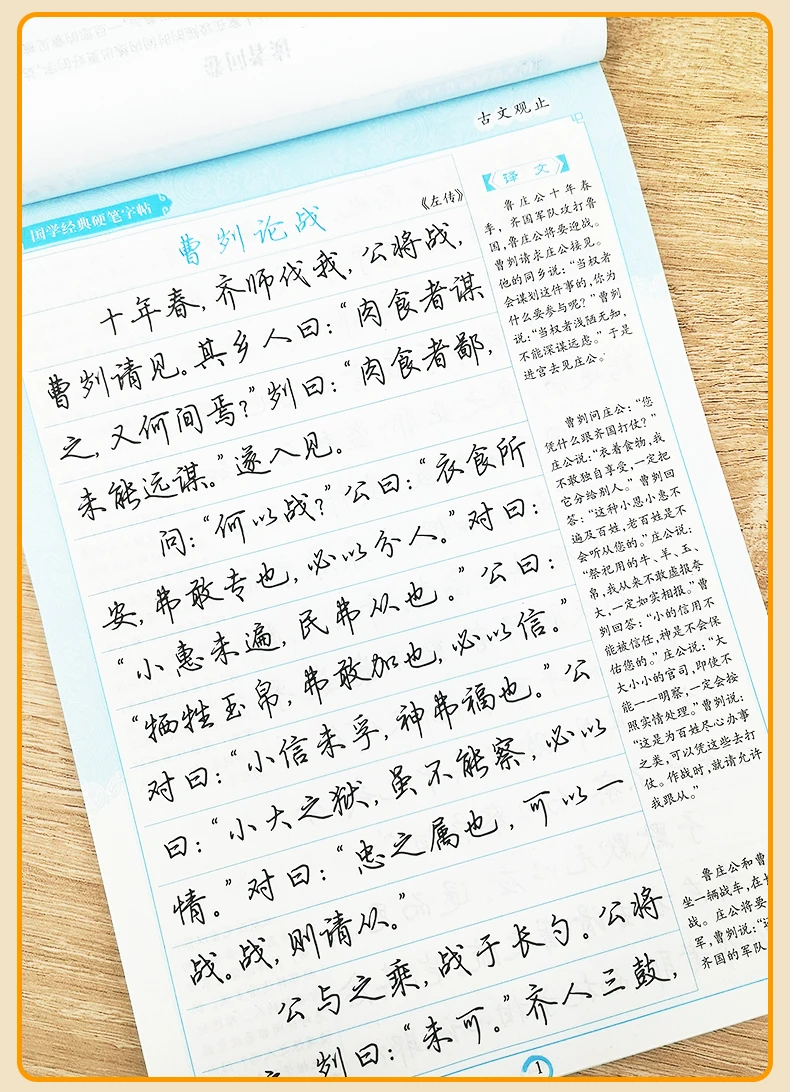 读者问卷
古文观止
国学经典硬笔字帖
曹刿论战
《左传》
十年春，齐师伐我，公将战，
曹刿请见。其乡人曰：“肉食者谋
之，又何间焉？”刿曰：“肉食者鄙，
未能远谋。”遂入见。
问：“何以战？”公曰：“衣食所
安，弗敢专也，必以分人。”对曰：
“小惠未遍，民弗从也。”公曰：
“牺牲玉帛，弗敢加也，必以信。”
对曰：“小信未孚，神弗福也。”公
曰：“小大之狱，虽不能察，必以
情。”对曰：“忠之属也，可以一
战。战，则请从。”
公与之乘，战于长勺。公将
刿曰：“未可。”齐人三鼓，
译文
鲁庄公十年春
季，齐国军队攻打鲁
国，鲁庄公将要迎战。
曹刿请求庄公接见。
他的同乡说：“当权者
会谋划这件事的，你为
什么要参与呢？”曹刿
说：“当权者浅陋无知，
不能深谋远虑。”于是
进宫去见庄公。
曹刿问庄公：“您
凭什么跟齐国打仗？”
庄公说：“衣着食物，我
不敢独自享受，一定把
它分给别人。”曹刿回
答：“这种小恩小惠不
遍及百姓，老百姓是不
会听从您的。”庄公说：
“祭祀用的牛、羊、玉、
帛，我从来不敢虚报夸
大，一定如实相报。”曹
刿回答：“小的信用不
能被信任，神是不会保
佑您的。”庄公说：“大
大小小的官司，即使不
能一一明察，一定会按
照实情处理。”曹刿说：
“这是为百姓尽心办事
之类，可以凭这些去打
仗。作战时，就请允许
我跟从。”
鲁庄公和曹
坐一辆战车，在长
战。庄公将要
军，曹刿说：“还
齐国的军队
1